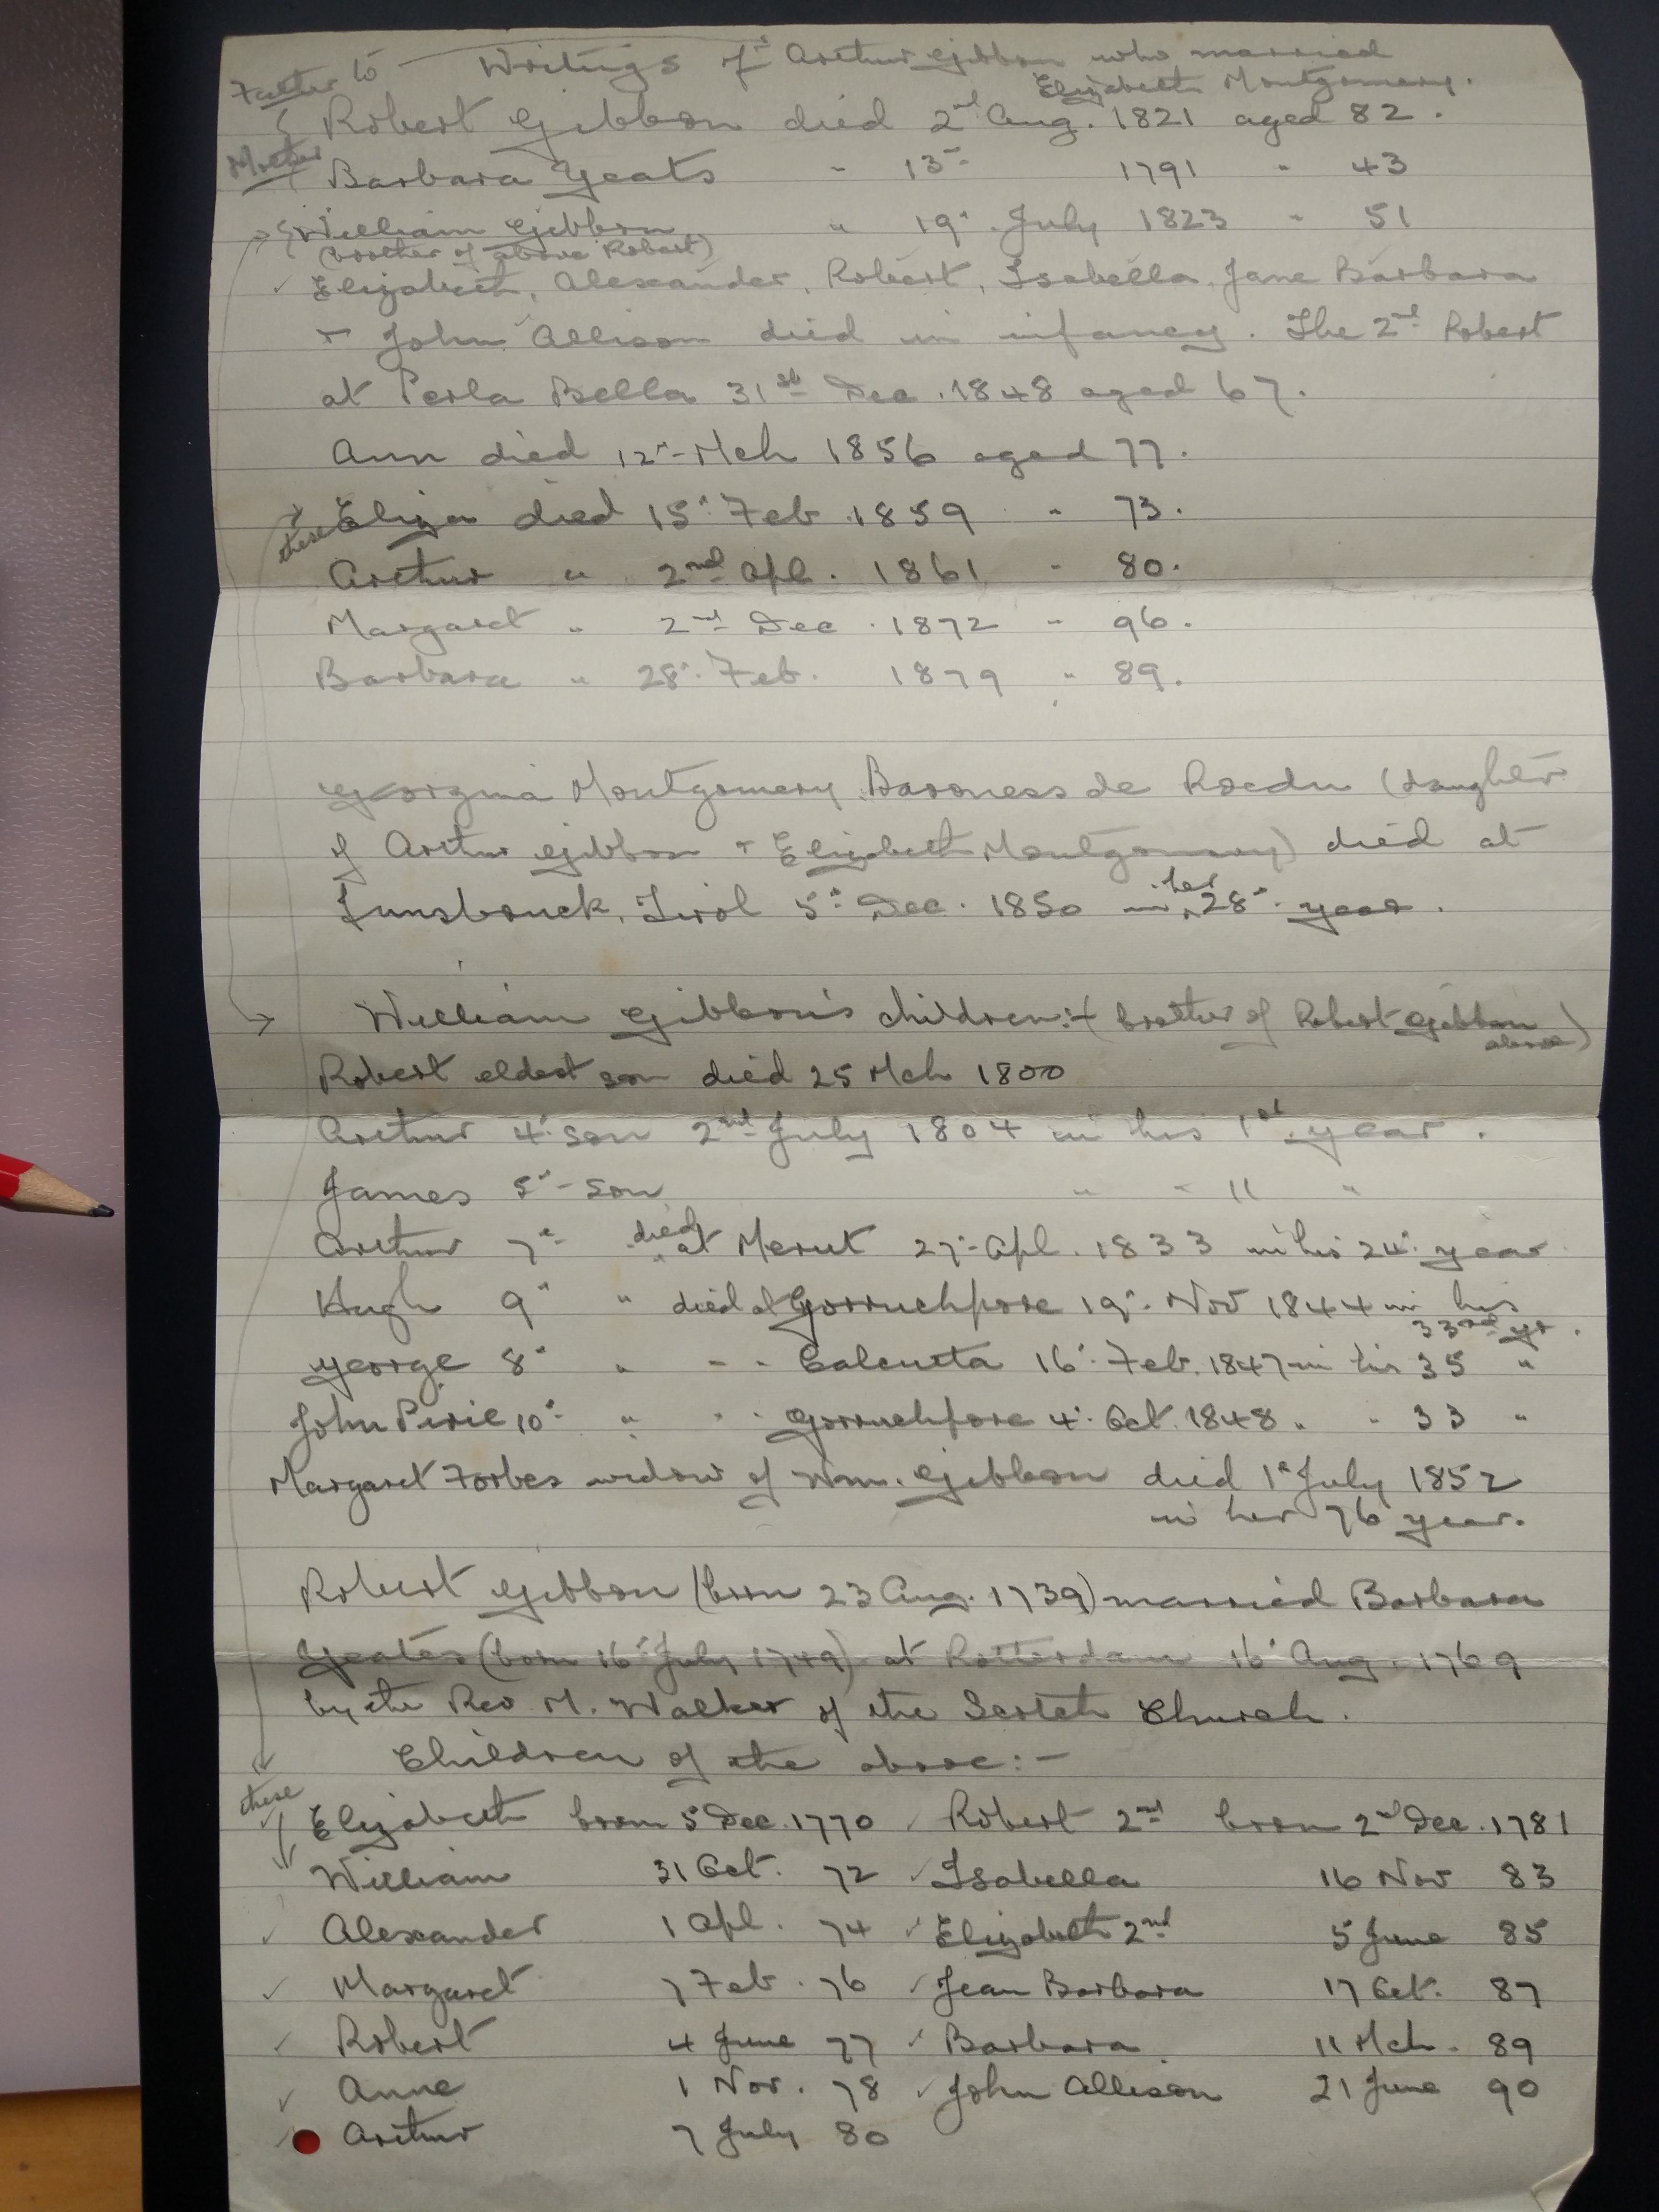 Father to Writings of Arthur Gibbon who married
Elizabeth Montgomery.
Robert Gibbon died 2nd Aug. 1821 aged 82.
Mother Barbara Yeats " 13th 1791 " 43
William Gibbon " 19th July 1823 " 51
(brother of above Robert)
Elizabeth, Alexander, Robert, Isabella, Jane Barbara
+ John Allison died in infancy. The 2nd Robert
at Perla Bella 31st Dec. 1848 aged 67.
Ann died 12th Mch 1856 aged 77.
these Eliza died 15th Feb 1859 " 73.
Arthur " 2nd Apl. 1861 " 80.
Margaret " 2nd Dec. 1872 " 96.
Barbara " 28th Feb. 1879 " 89.
Georgina Montgomery Baroness de Roedn (daughter
of Arthur Gibbon + Elizabeth Montgomery) died at
Innsbruck, Tirol 5th Dec. 1850 in her 28th year.
William Gibbon's children:- (brother of Robert Gibbon
above)
Robert eldest son died 25 Mch 1800
Arthur 4th son 2nd July 1804 in his 1st year.
James 5th son " " 11 "
Arthur 7th " died at Merut 27th Apl. 1833 in his 24th year
Hugh 9th " died at Gorruchpore 19th Nov 1844 in his
33rd yr.
George 8th " " " Calcutta 16th Feb. 1847 in his 35 "
John Pirie 10th " " " Gorruchpore 4th Oct. 1848 " " 33 "
Margaret Forbes widow of Wm. Gibbon died 1st July 1852
in her 76 year.
Robert Gibbon (born 23 Aug. 1739) married Barbara
Yeates (born 16th July 1749) at Rotterdam 16th Aug. 1769
by the Rev M. Walker of the Scotch Church.
Children of the above:-
these Elizabeth born 5 Dec. 1770 Robert 2nd born 2nd Dec. 1781
William 31 Oct. 72 Isabella 16 Nov 83
Alexander 1 Apl. 74 Elizabeth 2nd 5 June 85
Margaret 7 Feb. 76 Jean Barbara 17 Oct. 87
Robert 4 June 77 Barbara 11 Mch. 89
Anne 1 Nov. 78 John Allison 21 June 90
Arthur 7 July 80